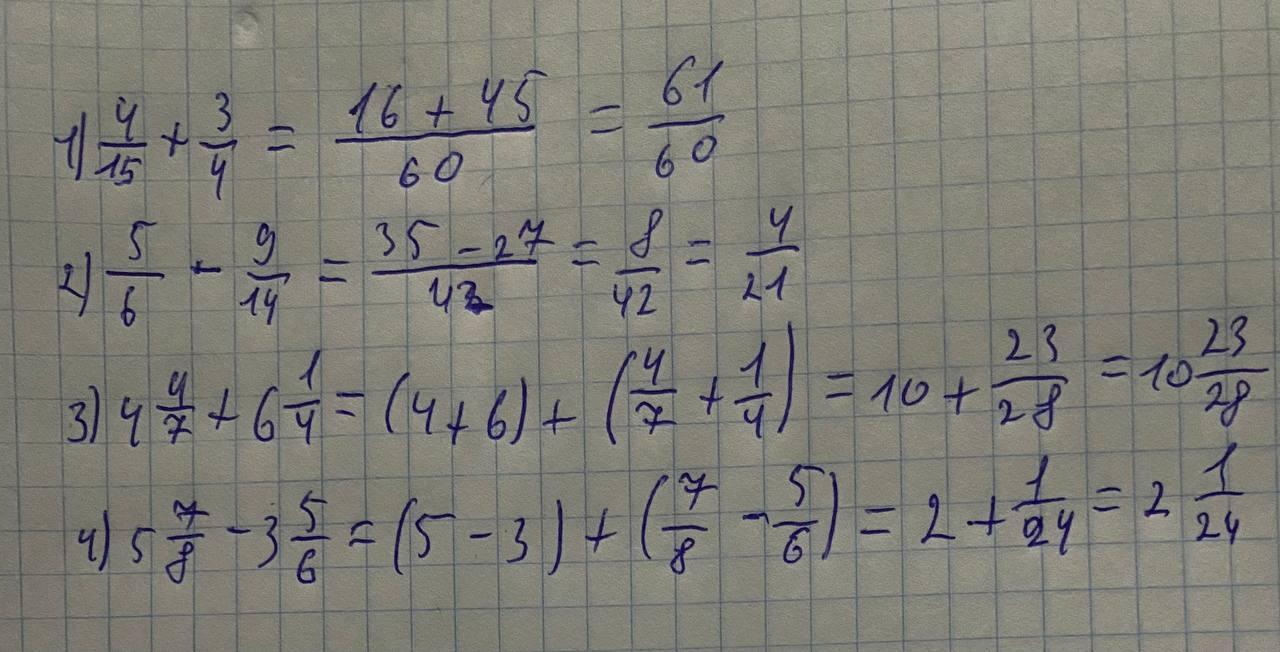 1) 4/15 + 3/4 = (16 + 45)/60 = 61/60
2) 5/6 - 9/14 = (35 - 27)/42 = 8/42 = 4/21
3) 4 4/7 + 6 1/4 = (4+6) + (4/7 + 1/4) = 10 + 23/28 = 10 23/28
4) 5 7/8 - 3 5/6 = (5 - 3) + (7/8 - 5/6) = 2 + 1/24 = 2 1/24